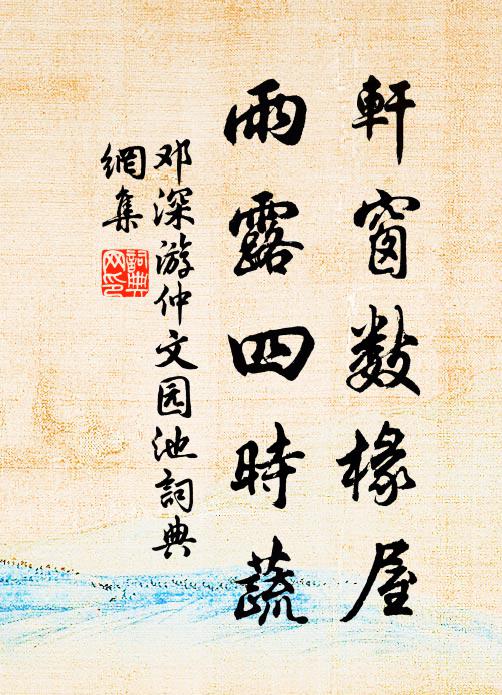 軒窗数椽屋
雨露四時蔬
邓深游仲文园池詞典
網集
詞典
网印